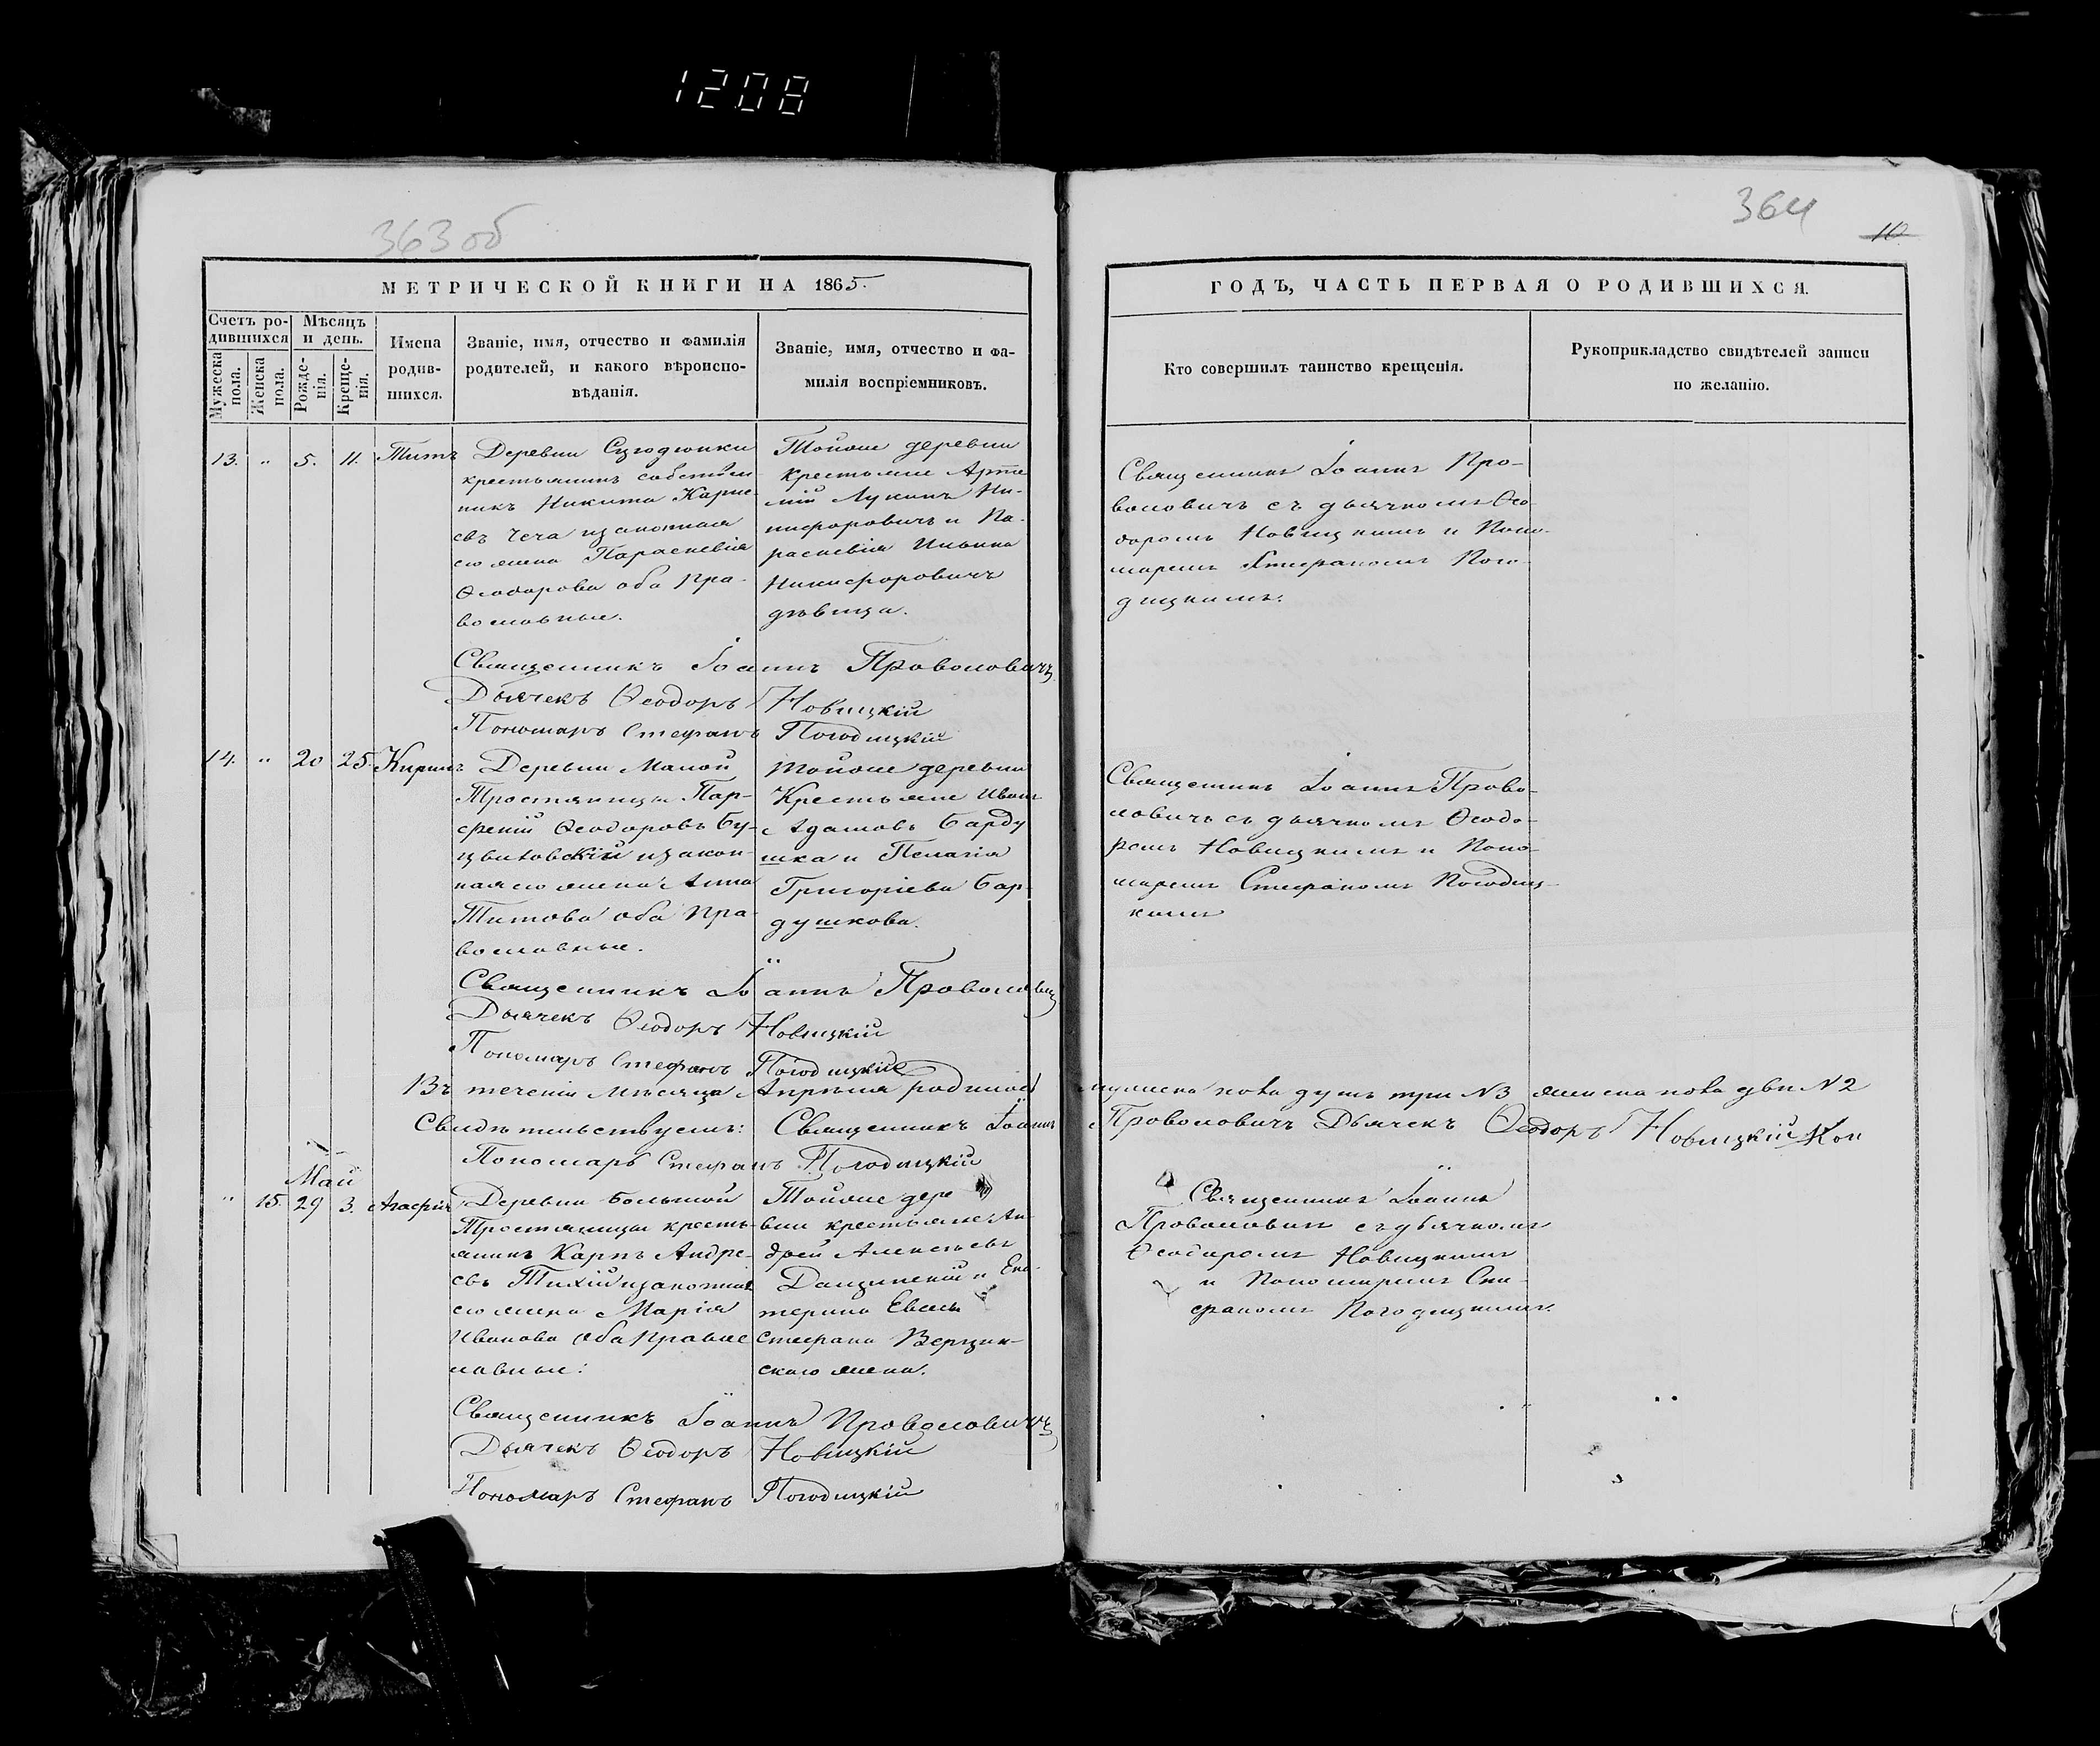 1208
363 об
364
10
МЕТРИЧЕСКОЙ КНИГИ НА 1865.
ГОДЪ, ЧАСТЬ ПЕРВАЯ О РОДИВШИХСЯ.
Счетъ ро-
дившихся
Мужеска
пола.
Женска
пола.
Мѣсяцъ
и день.
Рожде-
нія.
Креще-
нія.
Имена
родив-
шихся.
Званіе, имя, отчество и фамилія
родителей, и какого вѣроиспо-
вѣданія.
Званіе, имя, отчество и фа-
милія воспріемниковъ.
Кто совершилъ таинство крещенія.
Рукоприкладство свидѣтелей записи
по желанію.
13. „ 5. 11. Титъ
Деревни
крестьянинъ
никъ Никита
евъ Чеча и законная
его жена Параскевія
Ѳеодорова оба пра-
вославные.
Тойже деревни
крестьяне Арте
мій Лукинъ Ни-
кифоровичъ и Па-
раскевія Ильина
Никифоровичъ
дѣвица.
Священникъ Іоаннъ Про-
воловичъ съ дьячкомъ Ѳео-
доромъ Новицкимъ и Поно-
маремъ Стефаномъ Пого-
дицкимъ.
Священникъ Іоаннъ Проволовичъ
Дьячекъ Ѳеодоръ Новицкій
Пономарь Стефанъ Погодицкій
14. „ 20 25. Кириллъ
Деревни Малой
Тростяницы Пар-
феній Ѳеодоровъ Бу-
и закон-
ная его жена Анна
Титова оба пра-
вославные.
тойже деревни
Крестьяне Иванъ
Адамовъ Барду
шка и Пелагія
Григоріева Бар-
душкова.
Священникъ Іоаннъ Прово-
ловичъ съ дьячкомъ Ѳеодо-
ромъ Новицкимъ и Поно-
маремъ Стефаномъ Погодиц-
кимъ
Священникъ Іоаннъ Проволовичъ
Дьячекъ Ѳеодоръ Новицкій
Пономарь Стефанъ Погодицкій
Въ теченіи мѣсяца Апрѣля родилось мужеска пола душъ три №3 женска пола двѣ №2
Свидѣтельствуемъ: Священникъ Іоаннъ Проволовичъ Дьячекъ Ѳеодоръ Новицкій
Пономарь Стефанъ Погодицкій
Май
„ 15. 29 3. Агафія
Деревни Большой
Тростяницы кресть-
янинъ Карпъ Андре-
евъ Тихій и законная
его жена Марія
Иванова оба право
славные:
Тойже дере
вни крестьяне Ан-
дрей Алексѣевъ
и Ека-
терина
Стефана
скаго жена.
Священникъ Іоаннъ
Проволовичъ съ дьячкомъ
Ѳеодоромъ Новицкимъ
и Пономаремъ Сте-
фаномъ Погодицкимъ.
Священникъ Іоаннъ Проволовичъ
Дьячекъ Ѳеодоръ Новицкій
Пономарь Стефанъ Погодицкій